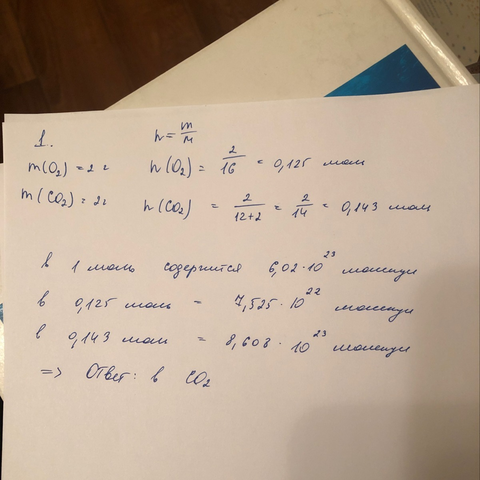 1. n = m/M
m(O₂) = 2 г n(O₂) = 2/16 = 0,125 моль
m(CO₂) = 2г n(CO₂) = 2/12+2 = 2/14 = 0,143 моль
в 1 моль содержится 6,02·10²³ молекул
в 0,125 моль = 7,525·10²² молекул
в 0,143 моль = 8,608·10²³ молекул
=> Ответ: в CO₂